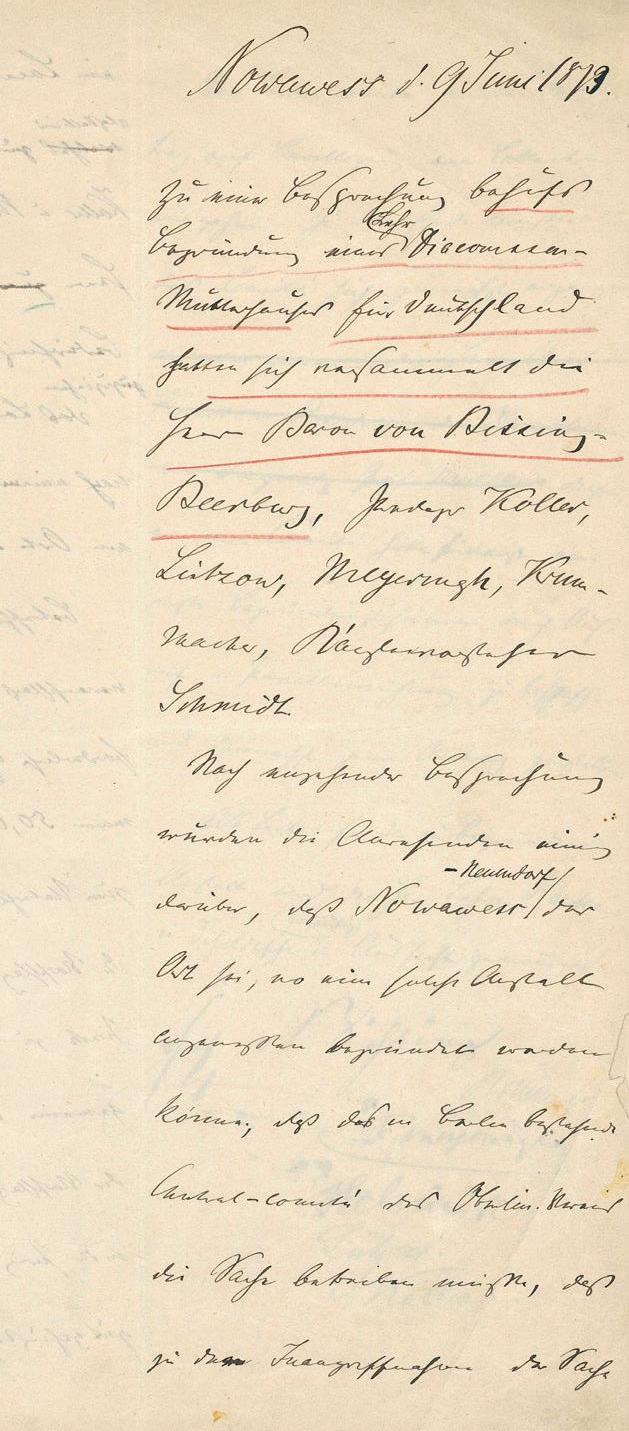 Nowawess d. 9 Juni 1873.
Zu einer Besprechung behufs
Lehr
Begründung eines Diaconissen-
Mutterhauses für Deutschland
hatten sich versammelt die
Herrn Baron von Bissing-
Beerburg, Prediger Koller,
Lützow, Meyeringh, Krum-
macher, Schmidt
Nach eingehender Besprechung
wurden die Anwesenden einig
-Neuendorf
darüber, daß Nowawess der
Ort sei, wo eine solche Anstalt
angemessen begründet werden
könne, daß das in Berlin bestehende
Central-Comité des Oberlin-Vereins
die Sache betreiben müsse, daß
zu der Inangriffnahme der Sache